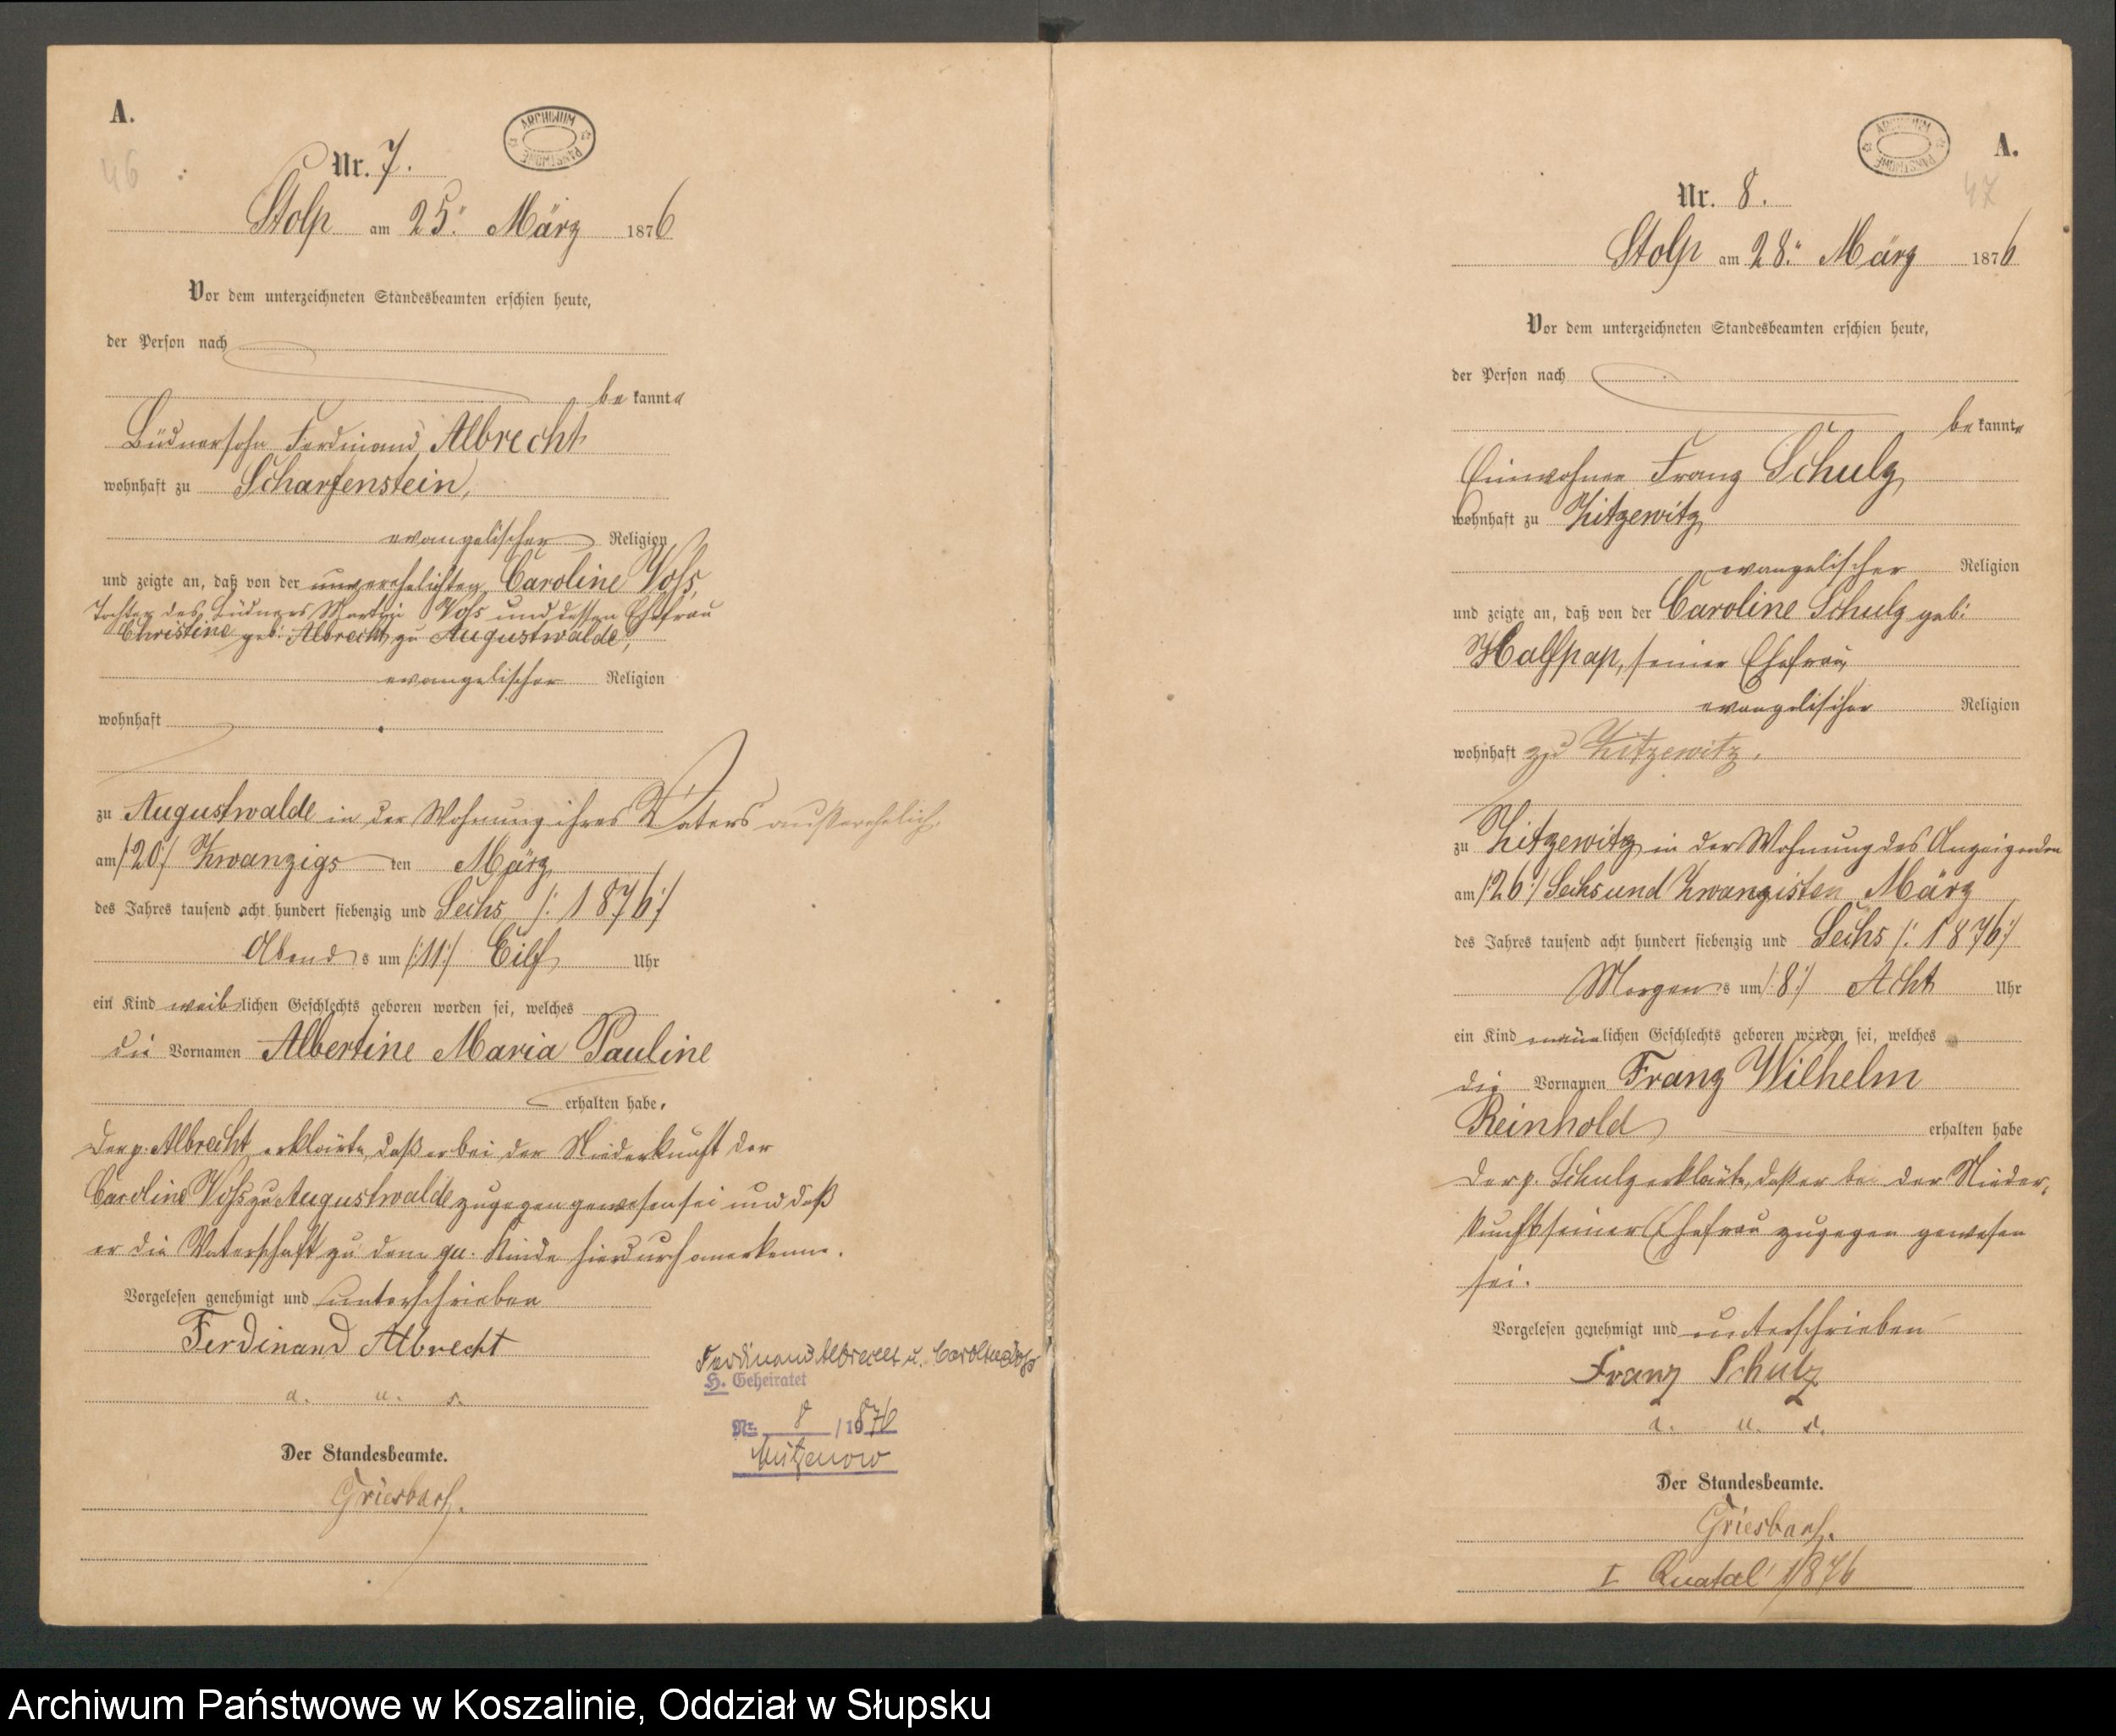 A.
46
ARCHIWUM PAŃSTWOWE
Nr. 7.
Stolp am 25. März 1876
Vor dem unterzeichneten Standesbeamten erschien heute,
der Person nach
be kannte
Büdnersohn Ferdinand Albrecht
wohnhaft zu Scharfenstein,
evangelischer Religion
und zeigte an, daß von der unverehelichten Caroline Voß,
Tochter des Büdners Martin Voß und dessen Ehefrau
Christine geb. Albrecht zu Augustwalde,
evangelischer Religion
wohnhaft
zu Augustwalde in der Wohnung ihres Vaters außerehelich
am /:20:/ Zwanzigs ten März
des Jahres tausend acht hundert siebenzig und Sechs /: 1876:/
Abends um /:11:/ Eilf Uhr
ein Kind weiblichen Geschlechts geboren worden sei, welches
die Vornamen Albertine Maria Pauline
erhalten habe.
Der p. Albrecht erklärte, daß er bei der Niederkunft der
Caroline Voß zu Augustwalde zugegen gewesen sei und daß
er die Vaterschaft zu dem qu. Kinde hierdurch anerkenne.
Vorgelesen genehmigt und unterschrieben
Ferdinand Albrecht
a. u. s.
Der Standesbeamte.
Griesbach.
Ferdinand Albrecht u. Caroline Voß
H. Geheiratet
Nr. 8 / 1876
Mützenow
ARCHIWUM PAŃSTWOWE
A.
47
Nr. 8.
Stolp am 28. März 1876
Vor dem unterzeichneten Standesbeamten erschien heute,
der Person nach
be kannte
Einwohner Franz Schulz
wohnhaft zu Zitzewitz
evangelischer Religion
und zeigte an, daß von der Caroline Schulz geb:
Halfpap, seiner Ehefrau
evangelischer Religion
wohnhaft zu Zitzewitz.
zu Zitzewitz in der Wohnung des Anzeigenden
am /:26:/ Sechsund Zwanzisten März
des Jahres tausend acht hundert siebenzig und Sechs /: 1876:/
Morgens um /:8:/ Acht Uhr
ein Kind männlichen Geschlechts geboren worden sei, welches
die Vornamen Franz Wilhelm
Reinhold erhalten habe
Der p. Schulz erklärte, daß er bei der Nieder,
kunft seiner Ehefrau zugegen gewesen
sei.
Vorgelesen genehmigt und unterschrieben
Franz Schulz
a. u. s.
Der Standesbeamte.
Griesbach.
I Quatal 1876
Archiwum Państwowe w Koszalinie, Oddział w Słupsku